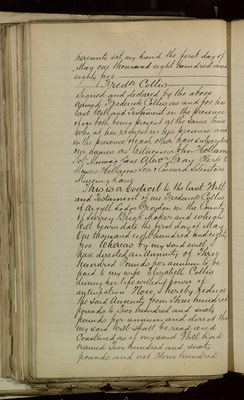 hereunto set my hand the first day of
May one thousand eight hundred and
eighty five
Fredk Collis
Signed and declared by the above
named Frederick Collis as and for his
last Will and Testament in the presence
of us both being present at the same time
who at his request in his presence and
in the presence of each other have subscribed
our names as Witnesses
This is a Codicil to the last Will
and Testament of me Frederick Collis
of Argyll Lodge Croydon in the County
of Surrey Brick Maker and which
Will bears date the first day of May
One thousand eight hundred and eighty
five Whereas by my said will I
have directed an Annuity of Three
Hundred Pounds per annum to be
paid to my wife Elizabeth Collis
during her life without power of
anticipation Now I hereby reduce
the said Annuity from Three hundred
pounds to Two hundred and sixty
pounds per annum and direct that
my said Will shall be read and
Construed as if my said Will had
named Two hundred and sixty
pounds and not Three hundred